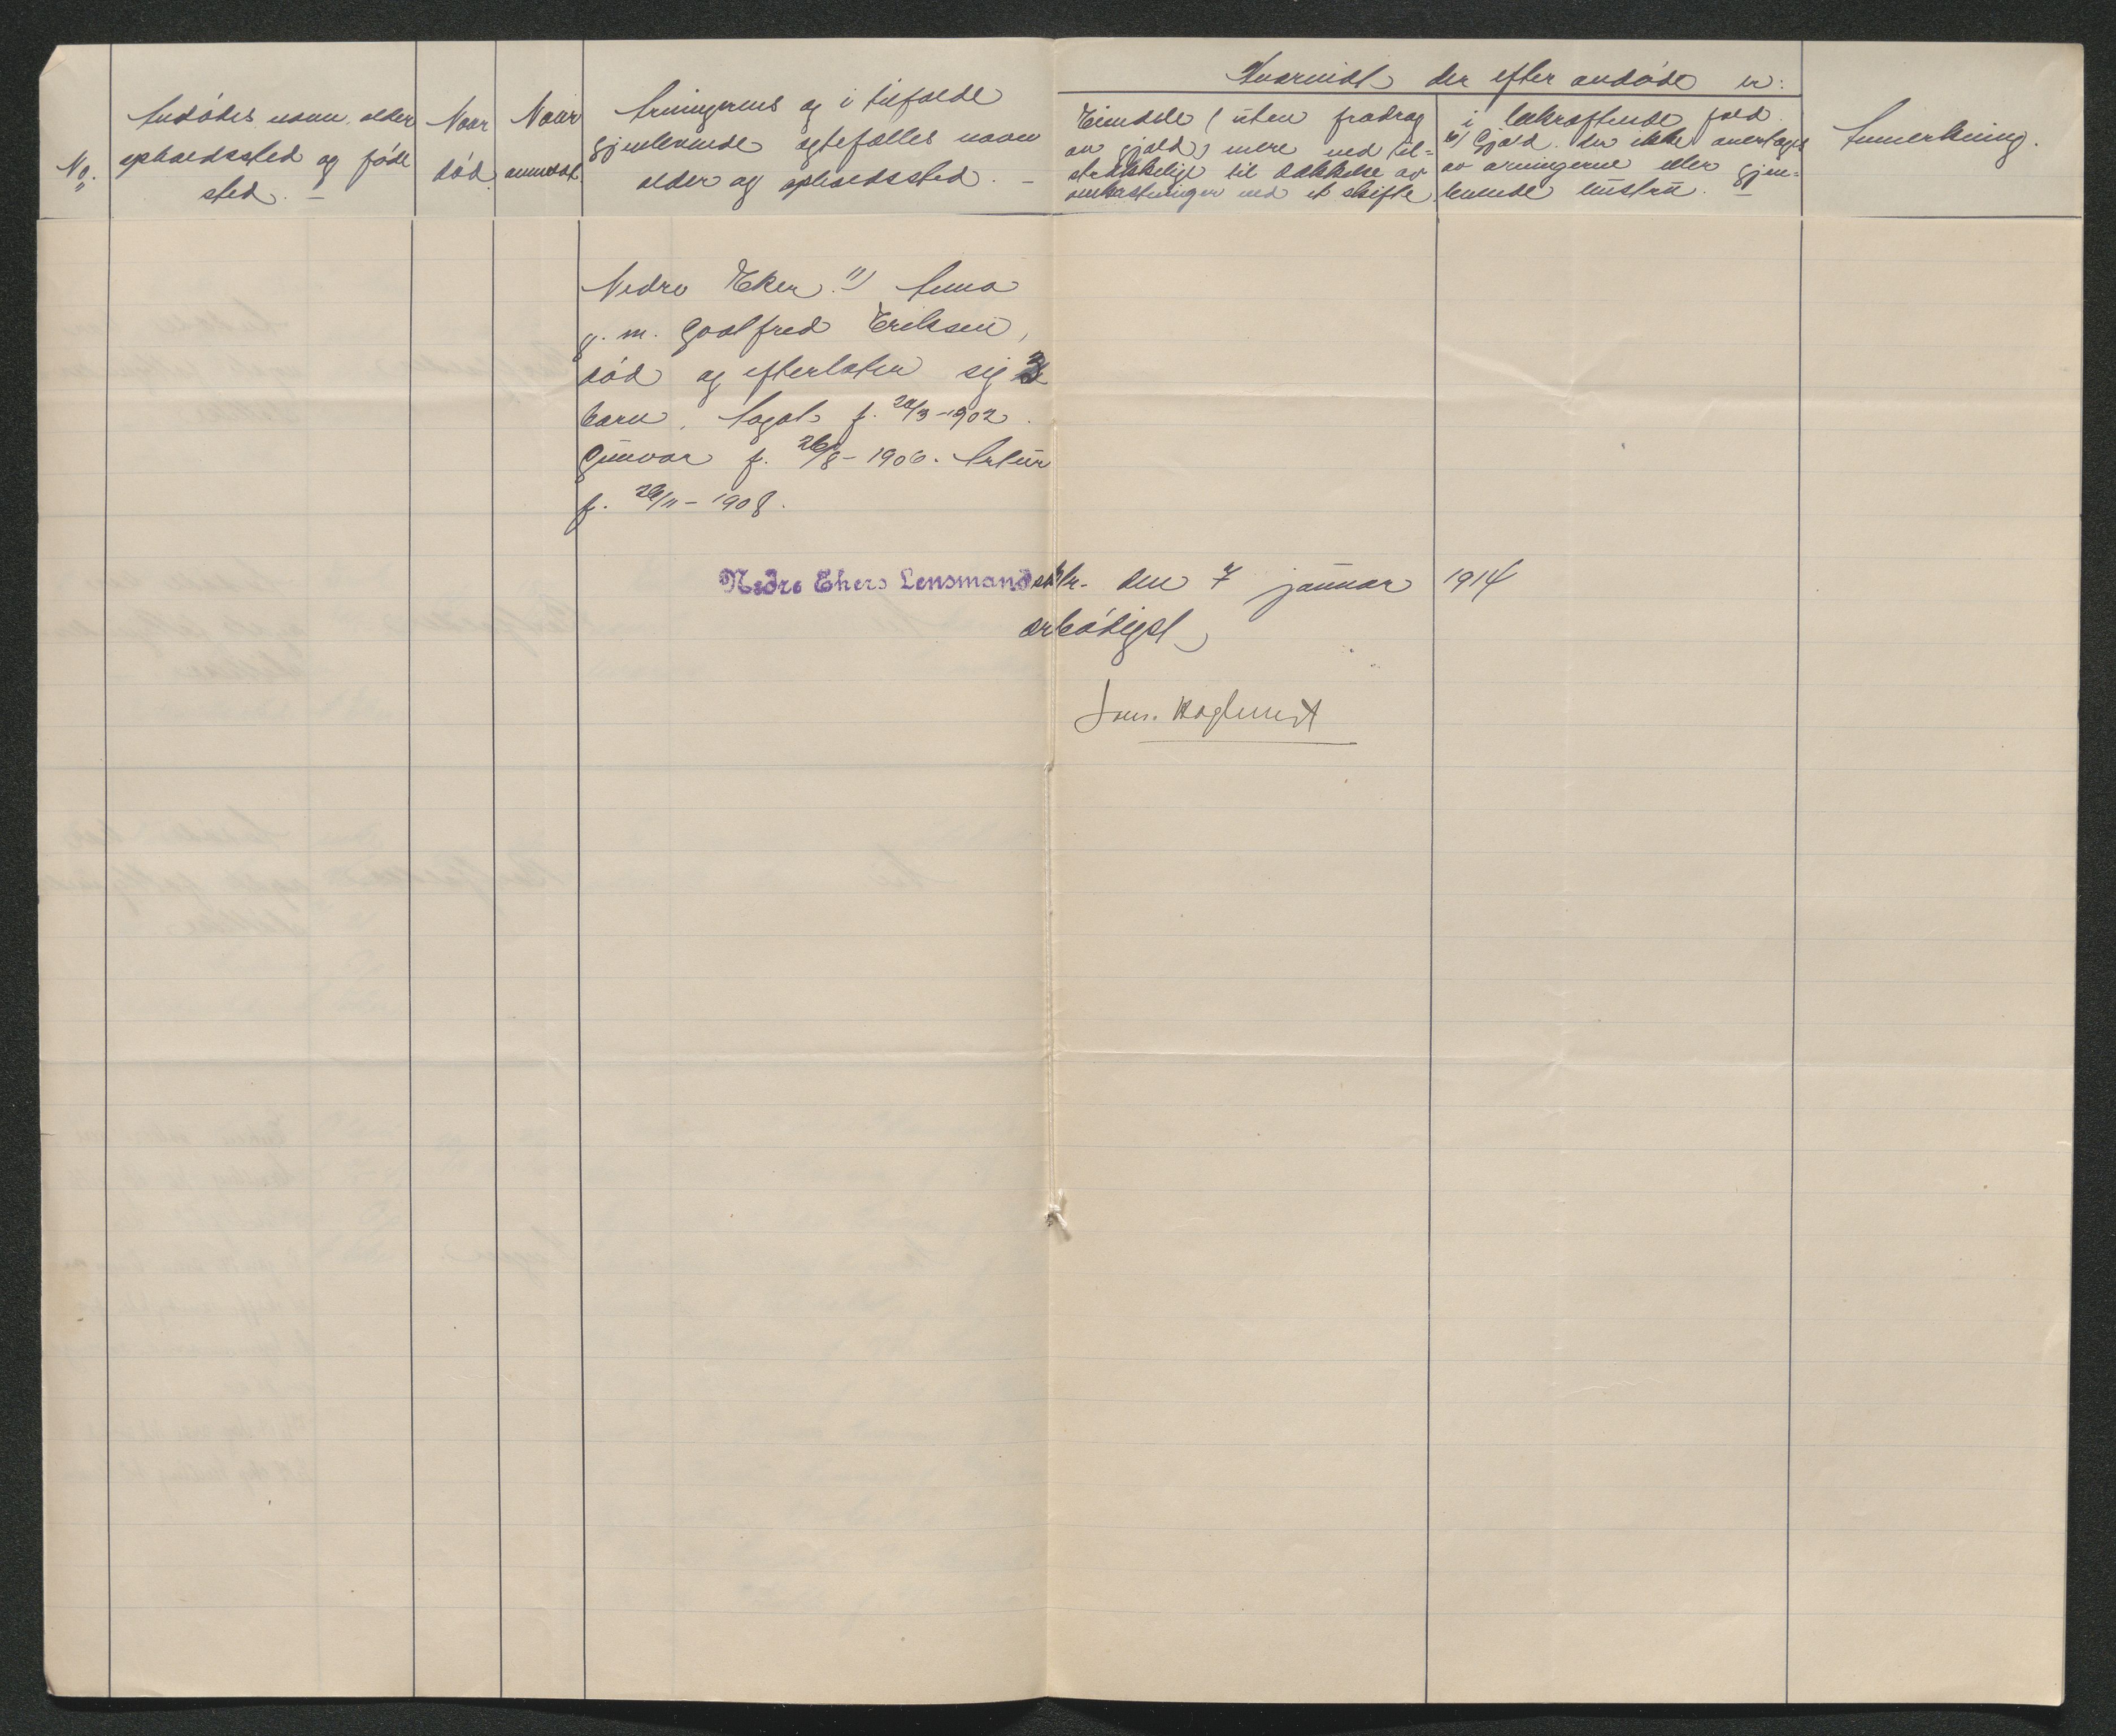 No.
Avdødes navn, alder
opholdssted og føde
sted. —
Naar
død.
Naar
anmeldt.
Arvingernes og i tilfælde
gjenlevende ægtefælles navn
alder og opholdssted. —
Hvorvidt der efter avdøde er:
Eiendele (uten fradrag
av gjæld) mere end til=
strækkelige til dækkelse av
omkostninger ved et skifte
i bekræftende fald.
b) Gjæld der ikke overtages
av arvingerne eller gjen=
levende hustru. —
Anmerkning.
Nedre Eker. 11) Anna
g. m. Godtfred Eriksen,
død og efterlater sig 3
barn, Aagot f. /3-1902.
Gunvor f. 26/8 - 1906. Artur
f. 26/11 - 1908.
Nedre Ekers Lensmandsktr. den 7 januar 1914
ærbødigst